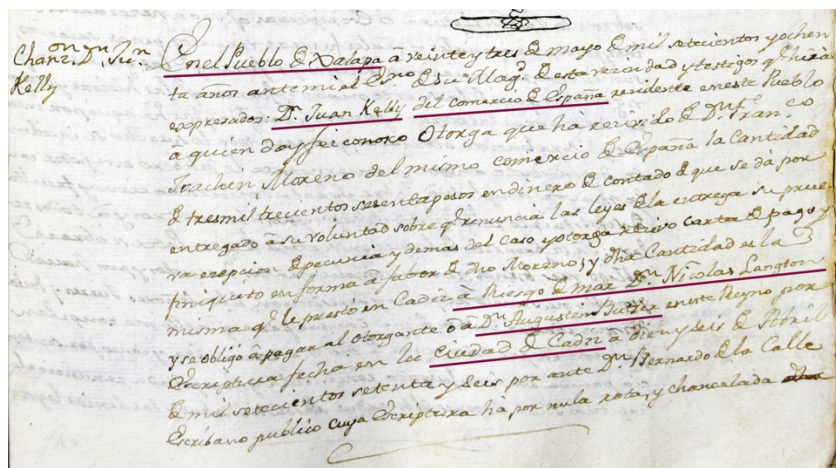 Chanz.on Dn Jun
Kelly
En el Pueblo de Xalapa â veinte y tres de mayo de mil setecientos y ochen
ta años ante mi el Esno de su Magd de esta vezindad y testigos qe hirân
expresados: Dn Juan Kelly del comercio de España residente en este Pueblo
â quien doy fee conozco Otorga que hâ rezevido de Dn Franco
Joachin Moreno del mismo comercio de España la Cantidad
de tres mil trecientos sesenta pesos en dinero de contado de que se dâ por
entregado â su voluntad sobre qe renuncia las leyes de la entrega su prue
va ecepcion de pecunia y demas del caso y otorga rezivo carta de pago y
finiquito en forma â fabor de dho Moreno; y dha Cantidad es la
misma qe le prestô en Cadiz â Riesgo de mar Dn Nicolas Langton
y se obligô â pagar al otorgante o â Dn Augustin Butler en este Reyno por
Escriptura fecha en la Ciudad de Cadiz â diez y seis de Abril
de mil setecientos setenta y seis por ante Dn Bernardo de la Calle
Escribano publico cuya Escriptura hâ por nula rota, y chancelada